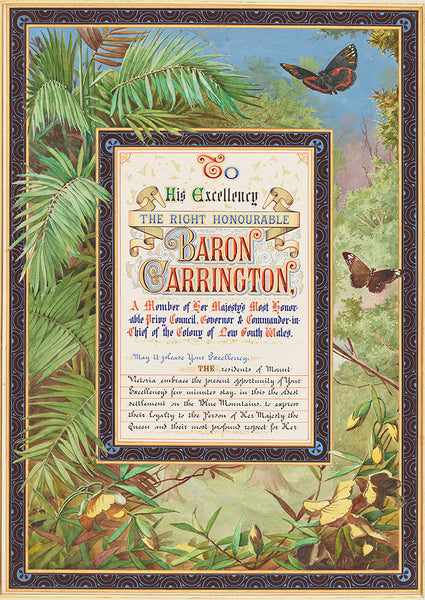 To
His Excellency
THE RIGHT HONOURABLE
BARON
CARRINGTON,
A Member of Her Majesty's Most Honor-
able Privy Council, Governor & Commander-in-
Chief of the Colony of New South Wales.
May it please Your Excellency,
THE residents of Mount
Victoria embrace the present opportunity of Your
Excellency's few minutes stay, in this the oldest
settlement on the Blue Mountains, to express
their Loyalty to the Person of Her Majesty the
Queen and their most profound respect for Her